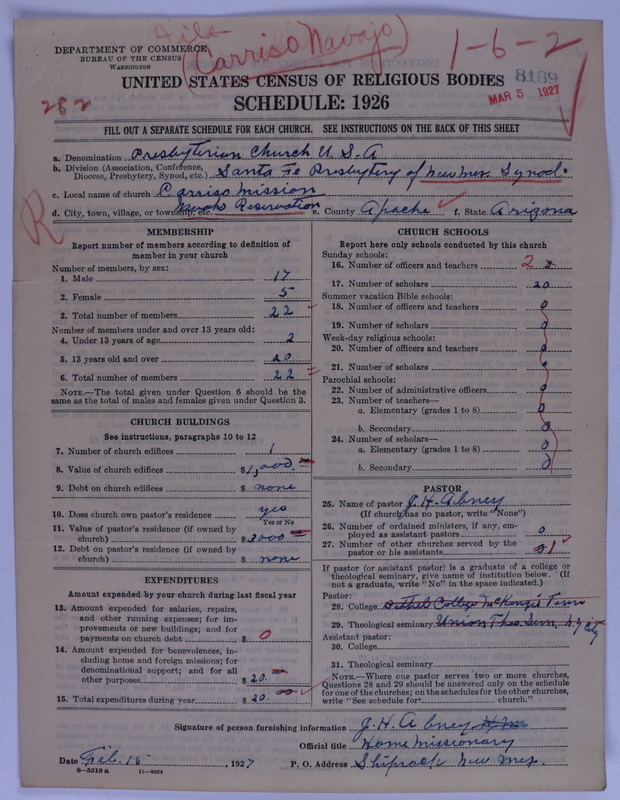 File
(Carriso Navajo)
1-6-2
DEPARTMENT OF COMMERCE
BUREAU OF THE CENSUS
WASHINGTON
8189
MAR 5 1927
282
UNITED STATES CENSUS OF RELIGIOUS BODIES
SCHEDULE: 1926
FILL OUT A SEPARATE SCHEDULE FOR EACH CHURCH. SEE INSTRUCTIONS ON THE BACK OF THIS SHEET
a. Denomination Presbyterian Church U. S. A
b. Division (Association, Conference, Diocese, Presbytery, Synod, etc.) Santa Fe Presbytery of New Mex. Synod.
c. Local name of church Carriso Mission
d. City, town, village, or township, etc. Navaho Reservation e. County Apache f. State Arizona
R
MEMBERSHIP
Report number of members according to definition of
member in your church
Number of members, by sex:
1. Male 17
2. Female 5
3. Total number of members 22
Number of members under and over 13 years old:
4. Under 13 years of age 2
5. 13 years old and over 20
6. Total number of members 22
NOTE.—The total given under Question 6 should be
same as the total of males and females given under Question 3.
CHURCH BUILDINGS
See instructions, paragraphs 10 to 12
7. Number of church edifices 1
8. Value of church edifices $1,000.
9. Debt on church edifices $ none
10. Does church own pastor's residence yes
Yes or No
11. Value of pastor's residence (if owned by
church) $2000
12. Debt on pastor's residence (if owned by
church) $ none
EXPENDITURES
Amount expended by your church during last fiscal year
13. Amount expended for salaries, repairs,
and other running expenses; for im-
provements or new buildings; and for
payments on church debt $ 0
14. Amount expended for benevolences, in-
cluding home and foreign missions; for
denominational support; and for all
other purposes $20.
15. Total expenditures during year $20.
CHURCH SCHOOLS
Report here only schools conducted by this church
Sunday schools:
16. Number of officers and teachers 2
17. Number of scholars 20
Summer vacation Bible schools:
18. Number of officers and teachers 0
19. Number of scholars 0
Week-day religious schools:
20. Number of officers and teachers 0
21. Number of scholars 0
Parochial schools:
22. Number of administrative officers 0
23. Number of teachers—
a. Elementary (grades 1 to 8) 0
b. Secondary 0
24. Number of scholars—
a. Elementary (grades 1 to 8) 0
b. Secondary 0
PASTOR
25. Name of pastor J. H. Abney
(If church has no pastor, write "None")
26. Number of ordained ministers, if any, em-
ployed as assistant pastors 0
27. Number of other churches served by the
pastor or his assistants 1
If pastor (or assistant pastor) is a graduate of a college or
theological seminary, give name of institution below. (If
not a graduate, write "No" in the space indicated.)
Pastor:
28. College Bethel College McKenzie Tenn
29. Theological seminary Union Theo. Sem. N Y City
Assistant pastor:
30. College
31. Theological seminary
NOTE.—Where one pastor serves two or more churches,
Questions 28 and 29 should be answered only on the schedule
for one of the churches; on the schedules for the other churches,
write "See schedule for church."
Signature of person furnishing information J. H. Abney
Official title Home Missionary
Date Feb. 15, 1927 P. O. Address Shiprock New Mex.
8-5518 a 11-9054